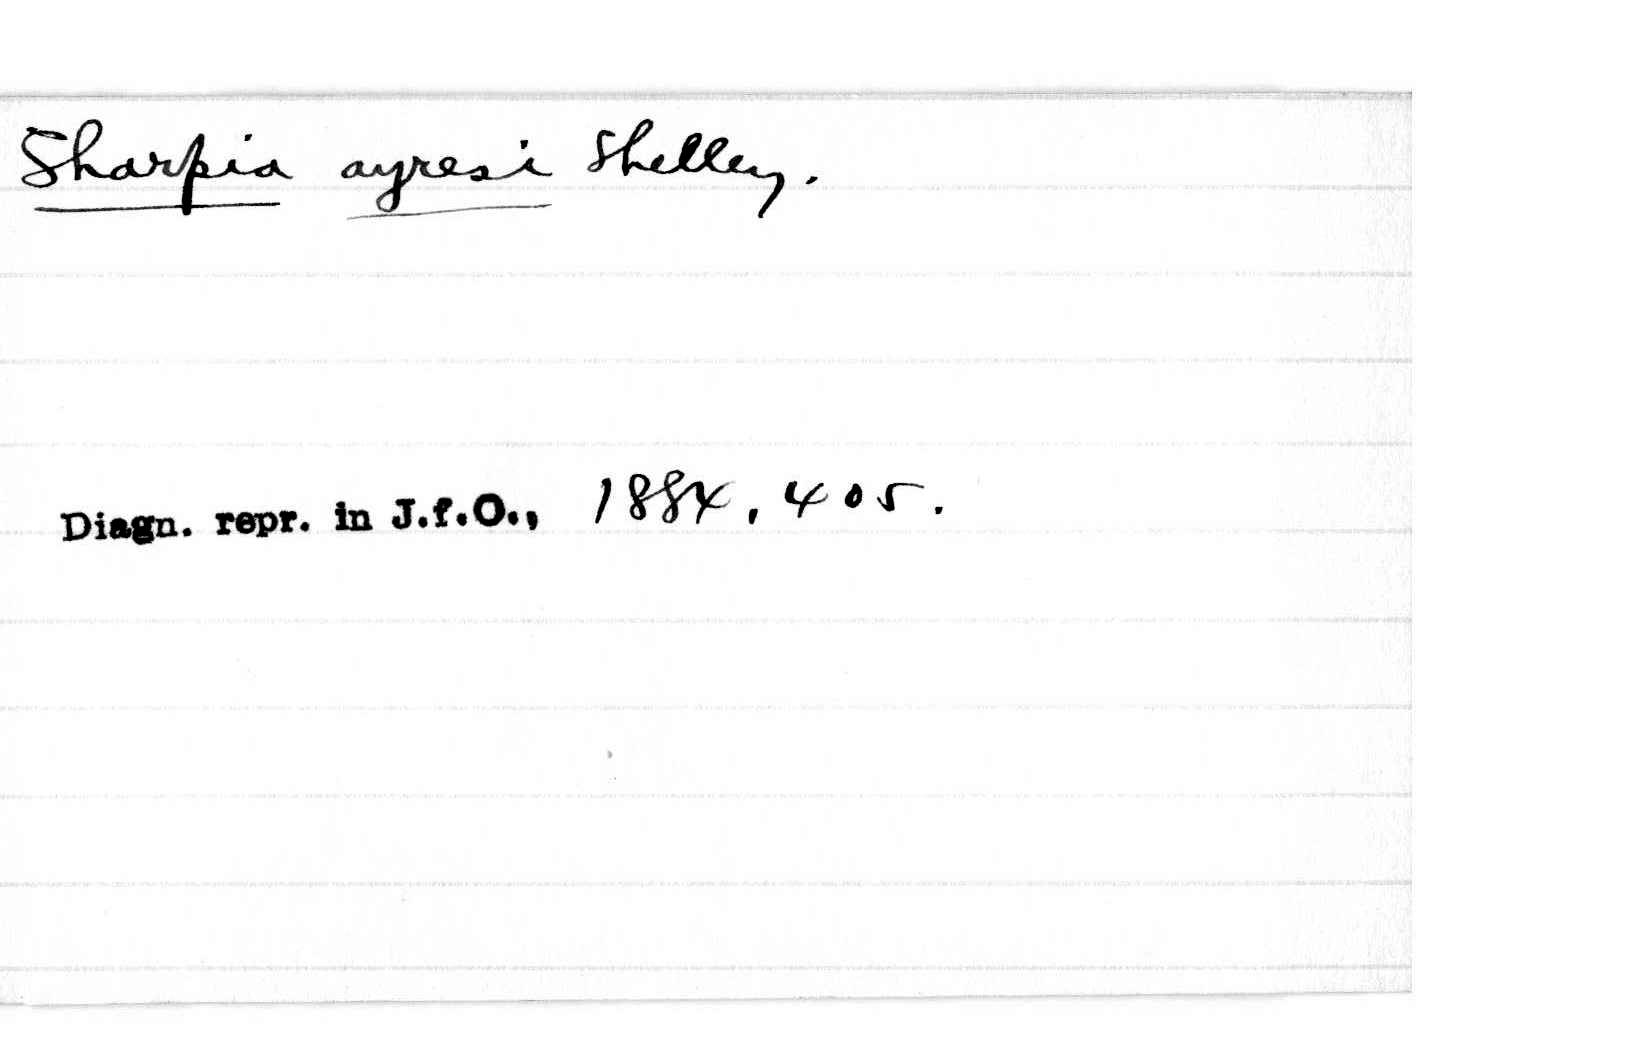 Sharpia ayresi Shelley.
Diagn. repr. in J.f.O., 1884, 405.